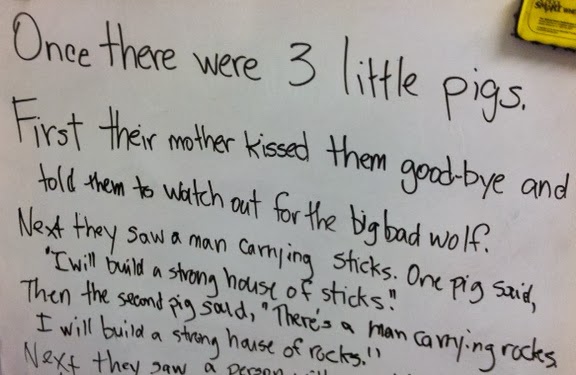 Once there were 3 little pigs.
First their mother kissed them good-bye and
told them to watch out for the big bad wolf.
Next they saw a man carrying sticks. One pig said,
"I will build a strong house of sticks."
Then the second pig said, "There's a man carrying rocks.
I will build a strong house of rocks."
Next they saw a person